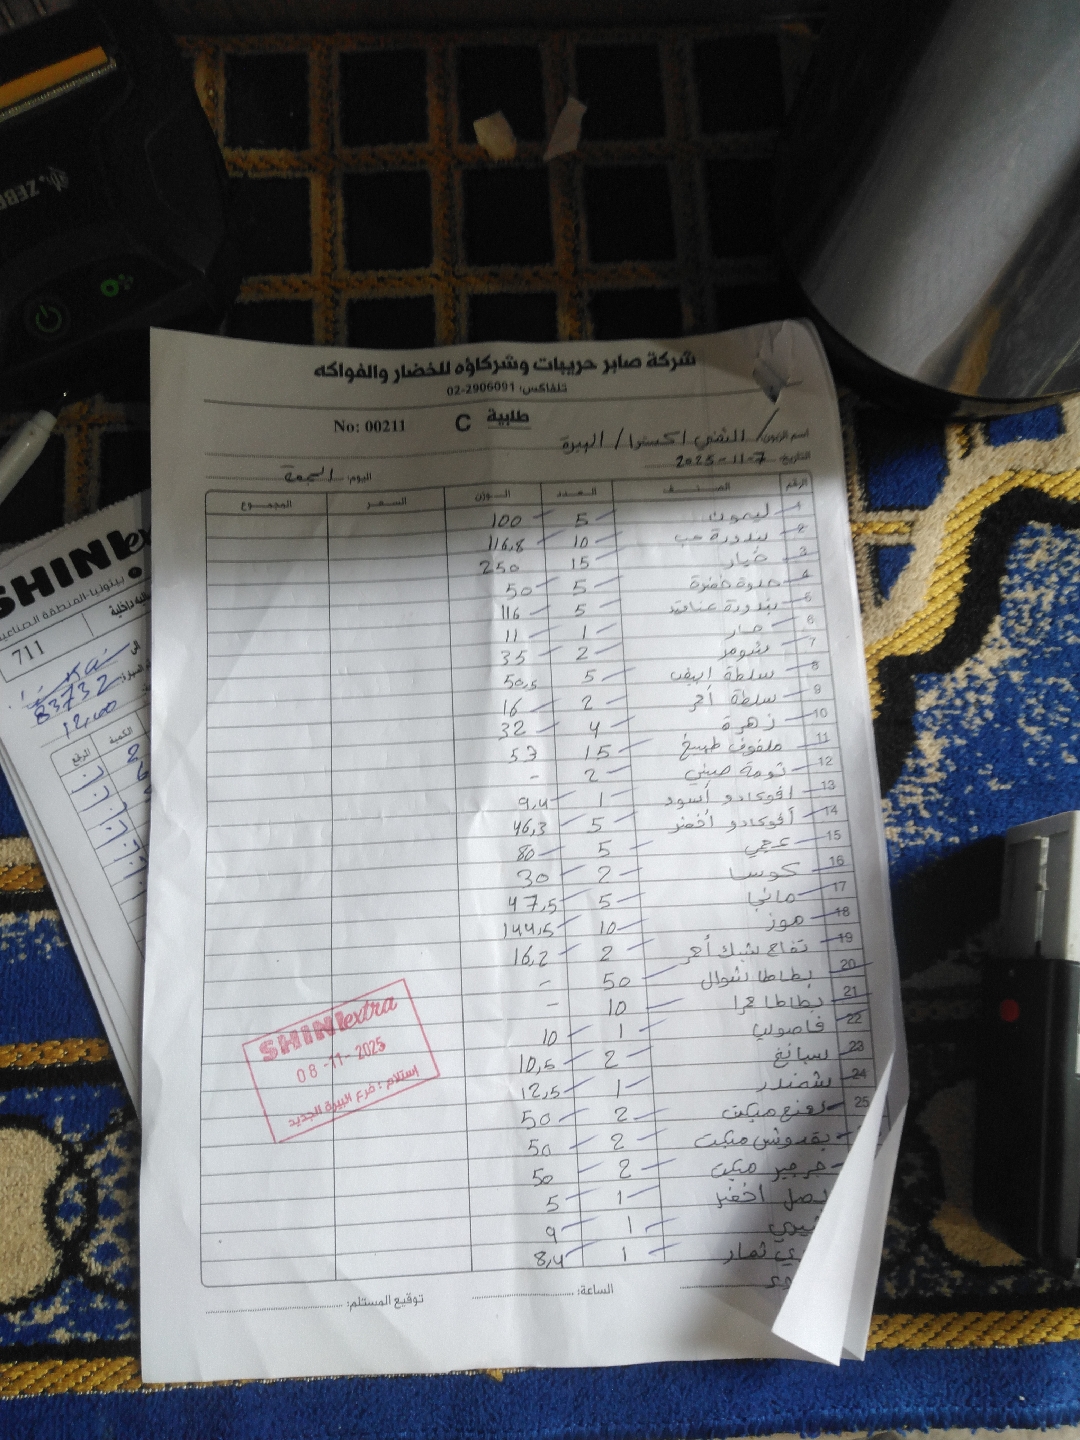 شركة صابر حريبات وشركاؤه للخضار والفواكه
تلفاكس: 02-2906091
طلبية C No: 00211
اسم الزبون: / الشني اكسترا / البيرة
التاريخ: 2025-11-7 اليوم: الجمعة
الرقم الصنف العدد الوزن السعر المجموع
1 ليمون 5 100
2 بندورة حب 10 116,8
3 خيار 15 250
4 حلوة خضرة 5 50
5 بندورة عناقيد 5 116
6 حار 1 11
7 شومر 2 35
8 سلطة ابيض 5 50,5
9 سلطة أحمر 2 16
10 زهرة 4 32
11 ملفوف طبيخ 15 57
12 ثومة صيني 2 -
13 افوكادو أسود 1 9,4
14 أفوكادو أخضر 5 46,3
15 عجمي 5 80
16 كوسا 2 30
17 مانجا 5 47,5
18 موز 10 144,5
19 تفاح شبك أحمر 2 16,2
20 بطاطا شوال 50 -
21 بطاطا حمرا 10 -
22 فاصوليا 1 10
23 سبانخ 2 10,5
24 شمندر 1 12,5
25 نعنع مبكت 2 50
بقدونس مبكت 2 50
جرجير مبكت 2 50
بصل اخضر 1 5
1 9
ثمار 1 8,4
الساعة: توقيع المستلم:
SHINI extra
08-11-2025
إستلام: فرع البيرة الجديد
SHINI
بيتونيا-المنطقة الصناعية
711
داخلية
83732
12,00
الكمية الرقم
ZEBRA